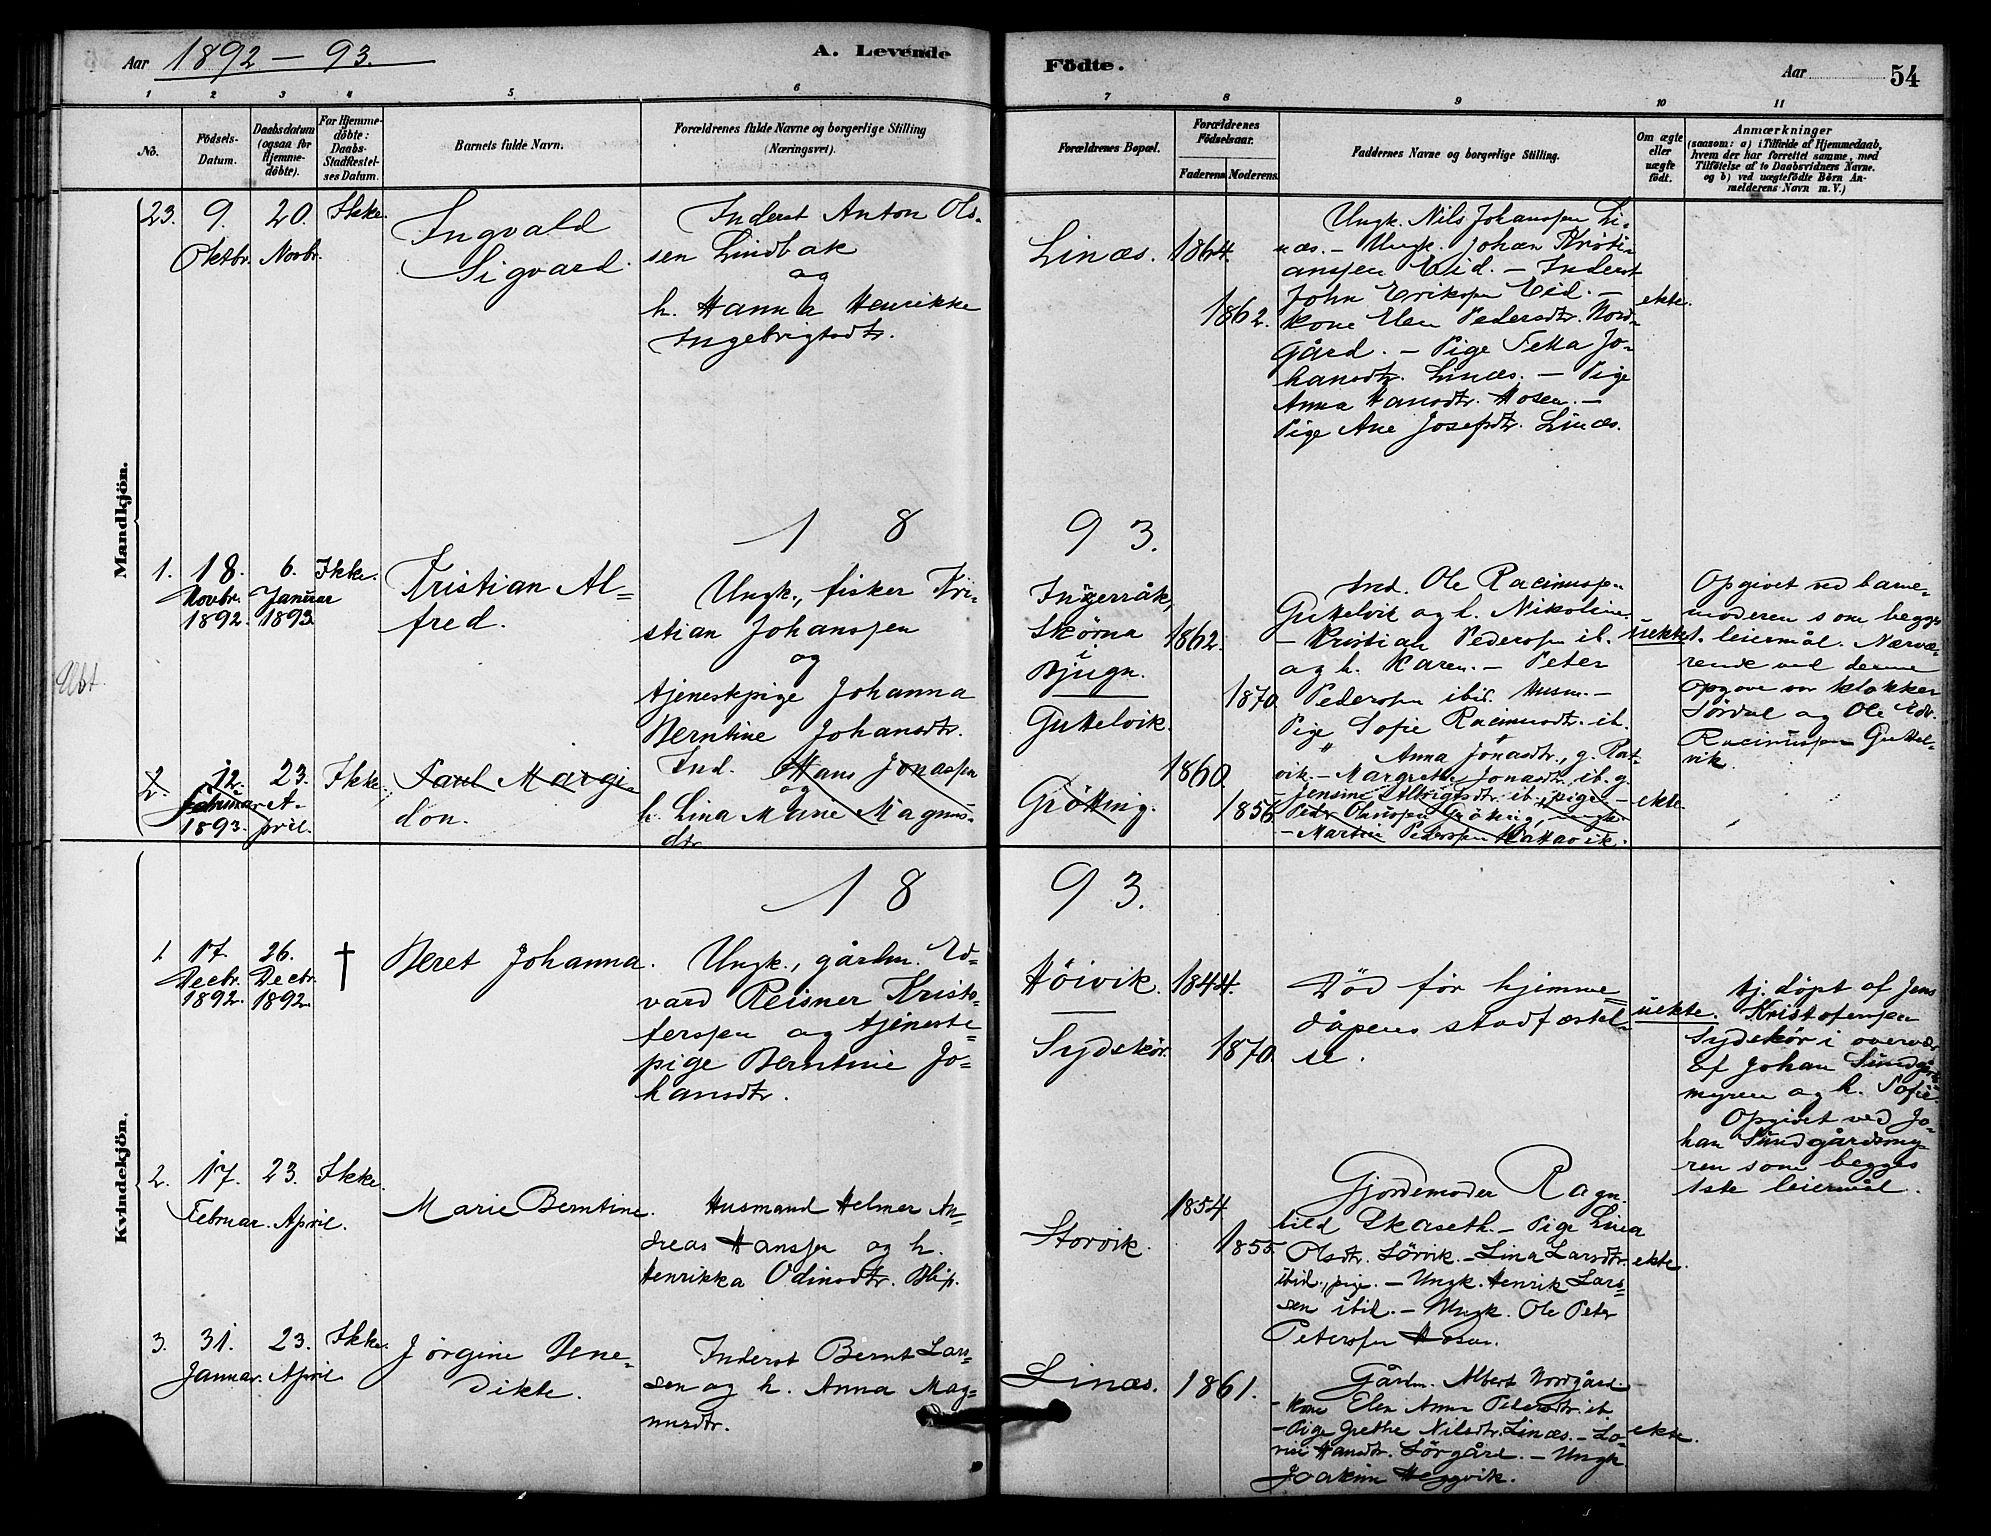 Aar 1892 - 93.
A. Levende
Födte.
Aar
54
1 2 3 4 5 6 7 8 9 10 11
No.
Födsels-
Datum.
Daabsdatum
(ogsaa for
Hjemme-
döbte).
For Hjemme-
döbte:
Daabs-
Stadfæstel-
ses Datum.
Barnets fulde Navn.
Forældrenes fulde Navne og borgerlige Stilling
(Næringsvei).
Forældrenes Bopæl.
Forældrenes
Födselsaar.
Faderens. Moderens.
Faddernes Navne og borgerlige Stilling.
Om ægte
eller
uægte
födt.
Anmærkninger
(saasom: a) i Tilfælde af Hjemmedaab,
hvem der har forrettet samme, med
Tilföielse af to Daabsvidners Navne.
og b) ved uægtefödte Börn An-
melderens Navn m. V.)
Mandkjön.
23.
9.
Oktbr.
20.
Novbr.
Ikke.
Ingvald
Sigvard.
Inderst Anton Ols-
sen Lindbak
og
h. Hanna Henrikke
Ingebrigtsdtr.
Linæs.
1864.
1862.
Ungk. Nils Johanssen Li-
næs. - Ungk. Johan Kristi-
anssen Eid. - Inderst
John Erikssen Eid. -
Kone Elen Pedersdtr. Nord-
gård. - Pige Jo-
hansdtr. Linæs. - Pige
Anna Hansdtr. Hosen. -
Pige Ane Josefsdtr. Linæs.
ekte.
18 93.
1.
18.
Novbr.
1892.
6.
Januar
1893.
Ikke.
Kristian Al-
fred.
Ungk., fisker Kri-
stian Johanssen
og
tjenestpige Johanna
Berntine Johansdtr.
Ingerråk,
Skörna
i
Bjugn.
Guttelvik.
1862.
1870.
Ind. Ole Racinussen
Guttelvik og h. Nikoline.
- Kristian Pederssen ib.
og h. Karen. - Peter
Pederssen ibid. Husm. -
Pige Sofie Racinusdtr. ib.
uekte
Opgivet ved barne-
moderen som begges
1. leiermål. Nærvæ-
rende ved denne
opgave var klokker
Sørdal og Ole Edv.
Racinussen Guttel-
vik.
2.
12.
Februar
1893.
23.
A-
pril.
Ikke.
Paul Margi-
don.
Ind. Hans Jonassen
og
h. Lina Marie Magnus-
dtr.
Grötting.
1860.
1856
" Anna Jonasdtr., g. Rat-
vik. - Margrethe Jonasdtr. ib. g.
- Jensine ib., pige -
Peder Grötting, ungk.
- Martin Pederssen
ekte.
Kvindekjön.
18 93.
1.
17.
Decbr.
1892.
26.
Decbr.
1892.
†
Beret Johanna.
Ungk., gårdm. Ed-
vard Reisner Kristo-
ferssen og tjeneste-
pige Berntine Jo-
hansdtr.
Höivik.
Sydskör.
1844.
1870.
Död før hjemme-
dåpens stadfæstel-
se.
uekte.
hj. döpt af Jens
Kristofersen
Sydskör i overvær
af Johan Sundgårds-
myren og h. Sofie.
Opgivet ved Jo-
han Sundgårdsmy-
ren som begges
1ste leiermål.
2.
17.
Februar.
23.
April.
Ikke.
Marie Berntine.
Husmand Helmer An-
dreas Hanssen og h.
Henrikka Odinsdtr.
Storvik.
1854
1855.
Gjordemoder Ragn-
hild Skaseth. - Pige Lina
Olsdtr. Sörvik. - Lina Larsdtr.
ibid., pige. - Ungk. Henrik Lars-
sen ibid. - Ungk. Ole Peter
Peterssen Hosen.
ekte.
3.
31.
Januar.
23.
April
Ikke.
Jörgine Bene-
dikte.
Inderst Bernt Lars-
sen og h. Anna Mag-
nusdtr.
Linæs.
1861.
Gårdm. Albert Nordgård.
- Kone Elen Anna Pedersdtr. ib.
- Pige Grethe Nilsdtr. Linæs. - Lo-
vise Hansdtr. Sörgård. - Ungk.
Joakim Heggvik.
ekte.